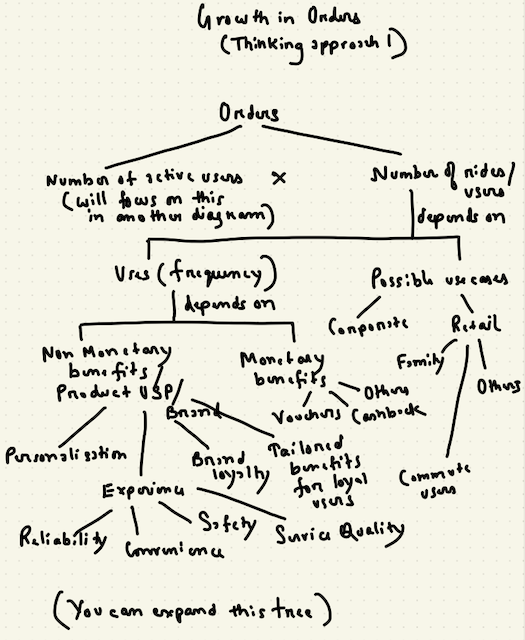 Growth in Orders
(Thinking approach 1)
Orders
Number of active users × Number of rides/
(will focus on this users
in another diagram) depends on
Uses (frequency) Possible use cases
depends on
Corporate Retail
Non Monetary Monetary Family Others
benefits/ benefits
Product USP/ Others
Brand Vouchers Cashback
Personalisation Brand Tailored
loyalty benefits
for loyal
users
Commute
users
Experience
Reliability Convenience Safety Service Quality
(You can expand this tree)